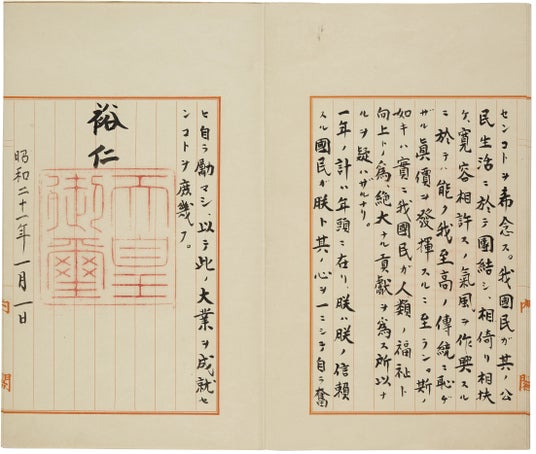 センコトヲ希念ス。我國民ガ其ノ公
民生活ニ於テ團結シ、相倚リ相扶
ケ、寛容相許スノ氣風ヲ作興スル
ニ於テハ能ク我至高ノ傳統ニ恥ヂ
ザル眞價ヲ發揮スルニ至ラン。斯ノ
如キハ實ニ我國民ガ人類ノ福祉ト
向上トノ爲、絶大ナル貢獻ヲ爲ス所以ナ
ルヲ疑ハザルナリ。
一年ノ計ハ年頭ニ在リ、朕ハ朕ノ信頼
スル國民ガ朕ト其ノ心ヲ一ニシテ自ラ奮
ヒ自ラ勵マシ、以テ此ノ大業ヲ成就セ
ンコトヲ庶幾フ。
裕仁
天皇
御璽
昭和二十一年一月一日
内閣